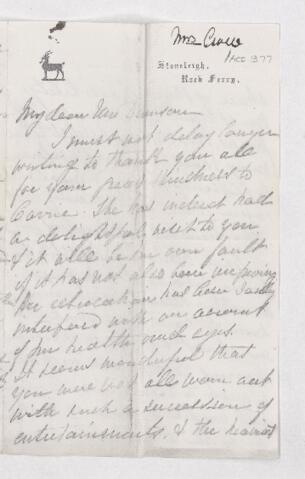 Mrs Crow
ACC 377
Stoneleigh,
Rock Ferry.
My dear Mrs
I must not delay longer
writing to thank you all
for your great kindness to
Carrie. She has indeed had
a delightful visit to you
& it will be her own fault
if it has not also been improving
Her education has been sadly
interfered with on account
of her health and eyes.
It seems wonderful that
you were not all worn out
with such a succession of
entertainments, & the